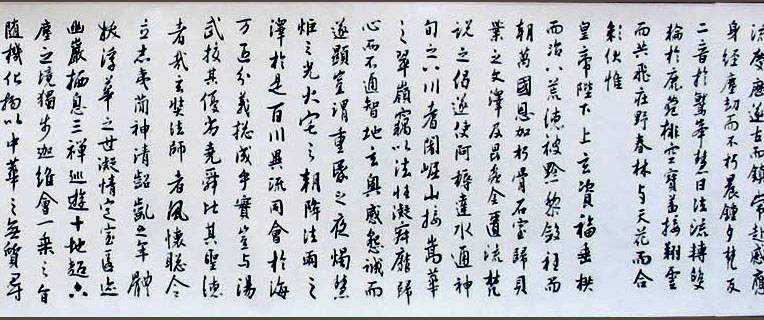 流慶歷遂古而鎮常赴感應
身經塵劫而不朽晨鍾夕梵交
二音於鷲峯慧日法流轉雙
輪於鹿菀排空寶蓋接翔雲
而共飛莊野春林与天花而合
彩伏惟
皇帝陛下上玄資福垂拱
而治八荒德被黔黎斂衽而
朝萬國恩加朽骨石室歸貝
葉之文澤及昆蟲金匱流梵
說之偈遂使阿耨達水通神
甸之八川耆闍崛山接嵩華
之翠嶺竊以法性凝寂靡歸
心而不通智地玄奧感懇誠而
遂顯豈謂重昏之夜燭慧
炬之光火宅之朝降法雨之
澤於是百川異流同會於海
万區分義總成乎實豈与湯
武校其優劣堯舜比其聖德
者哉玄奘法師者夙懷聰令
立志夷簡神清齠齔之年體
拔浮華之世凝情定室匿迹
幽巖栖息三禪巡遊十地超六
塵之境獨步迦維會一乘之旨
隨機化物以中華之無質尋